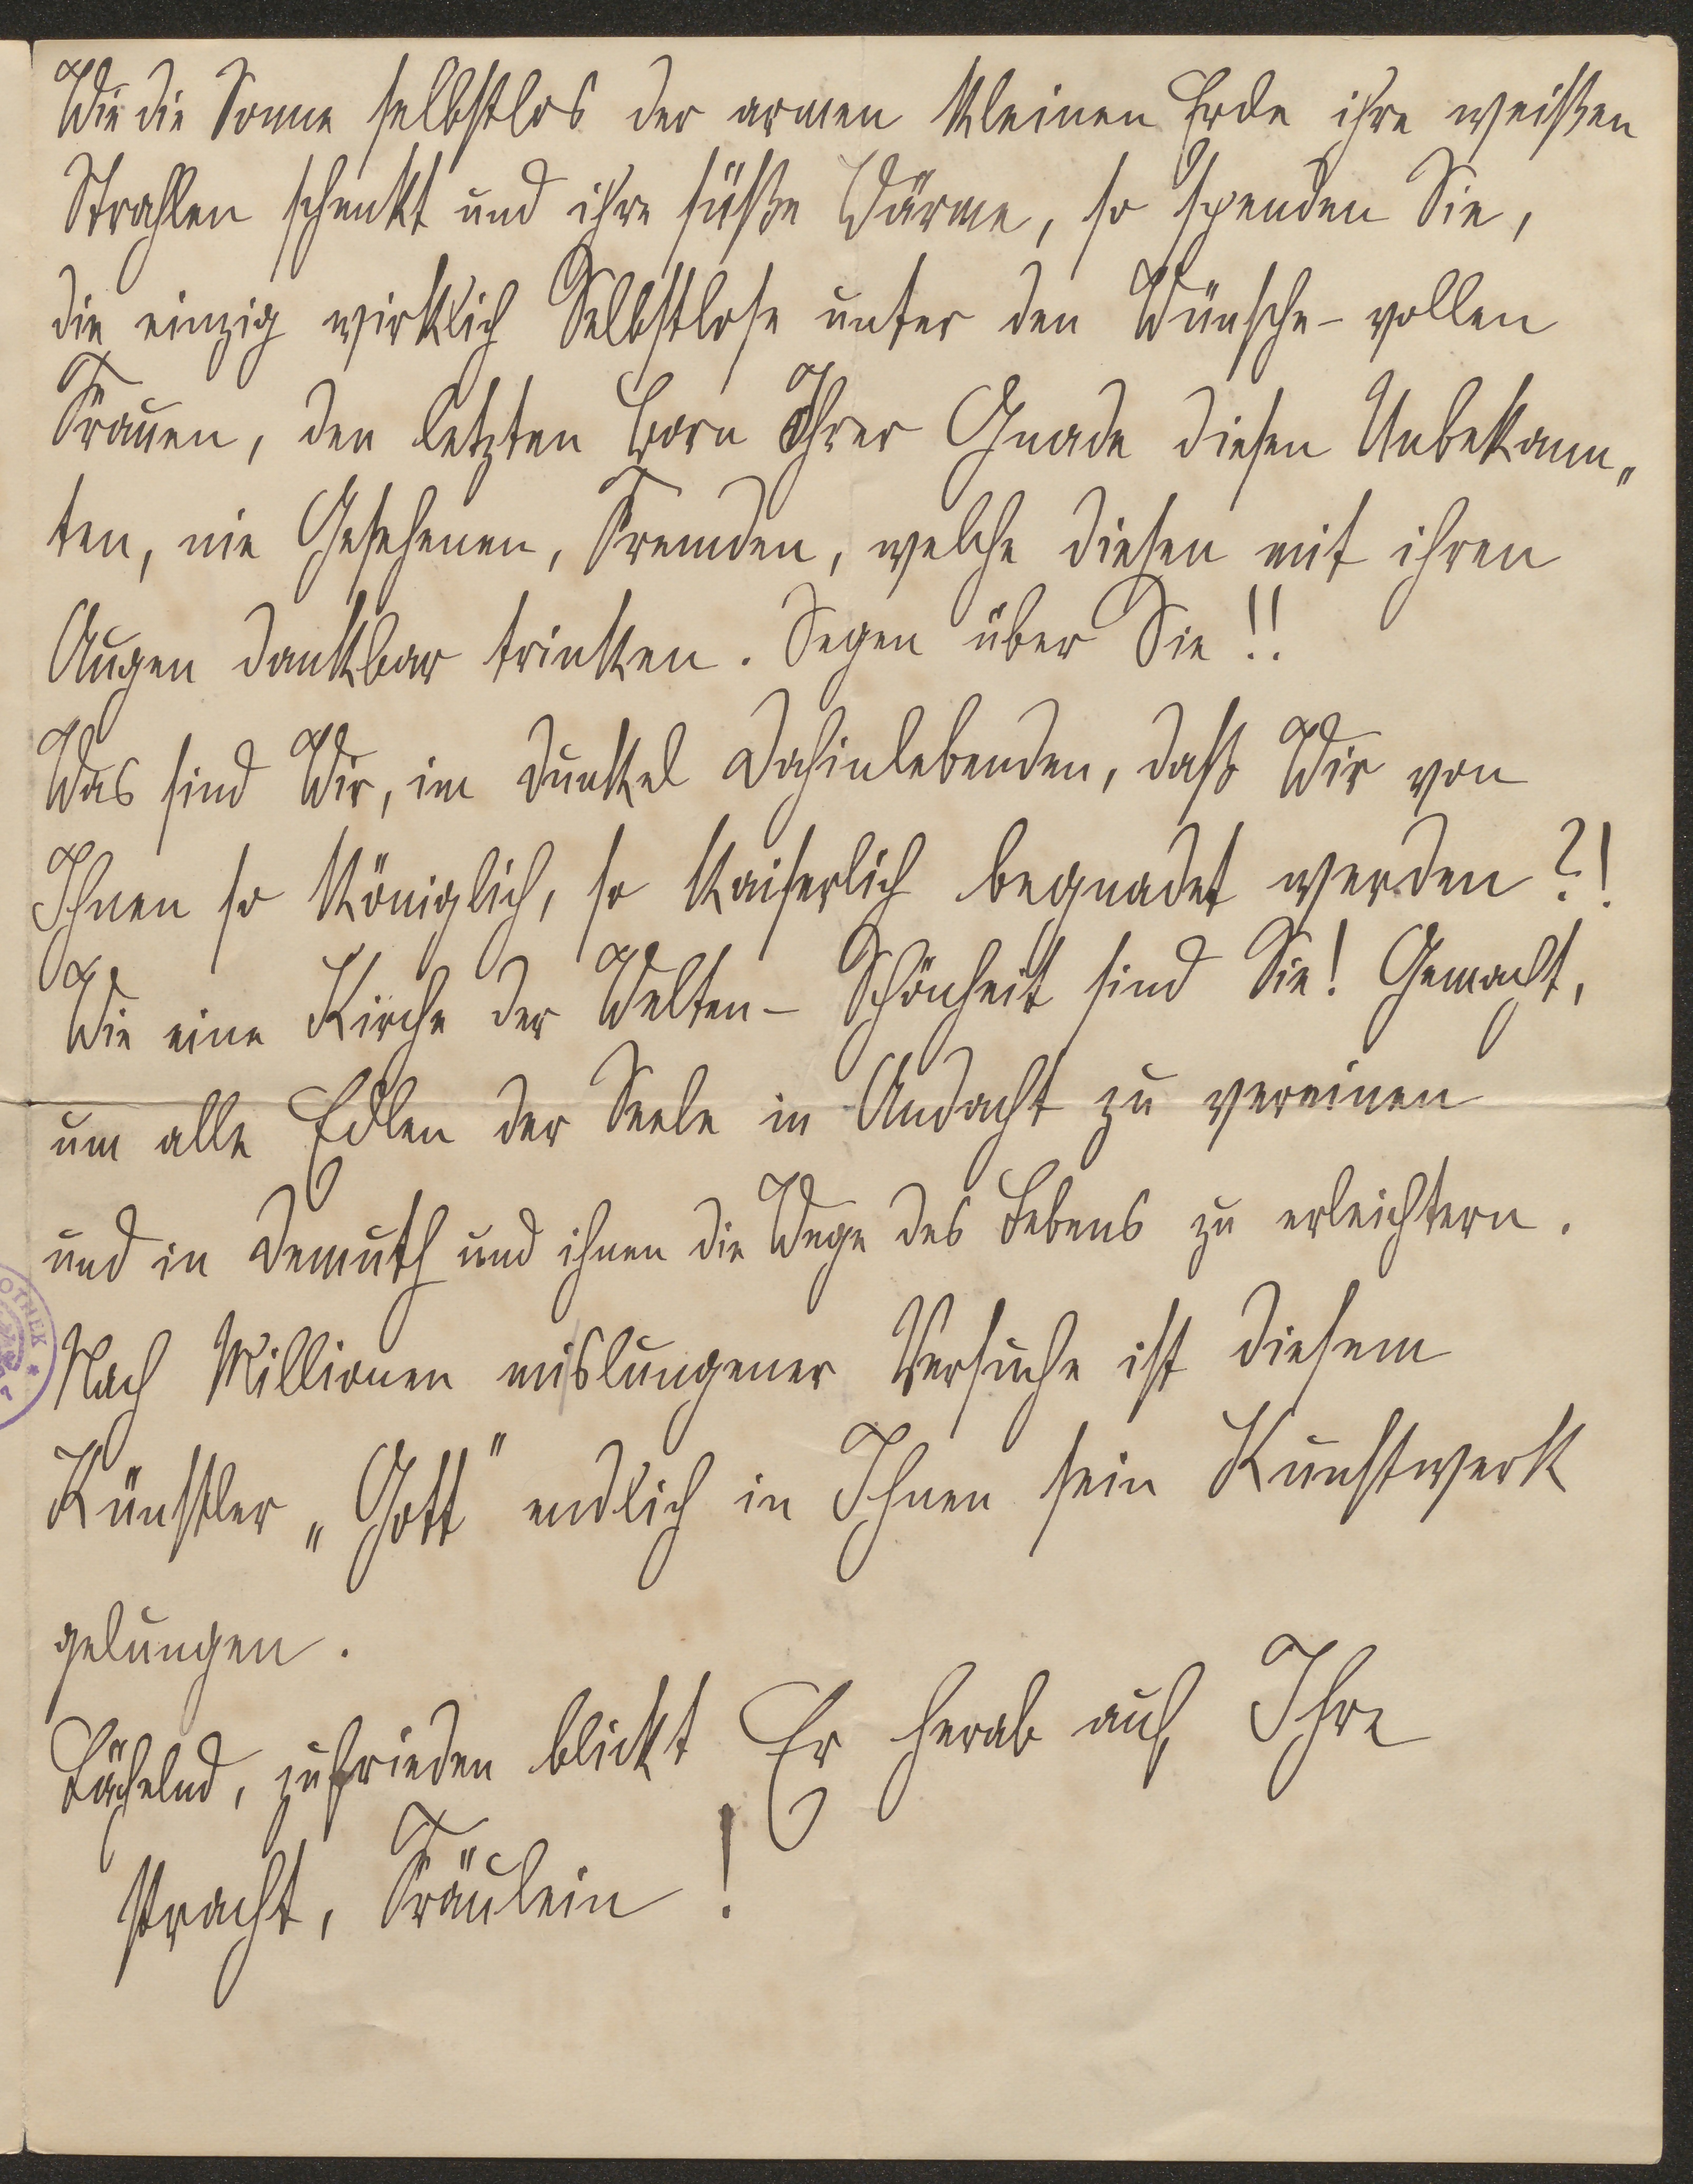 Wie die Sonne selbstlos der armen kleinen Erde ihre weißen
Strahlen schenkt und ihre süße Wärme, so spenden Sie,
die einzig wirklich Selbstlose unter den Wünsche-vollen
Frauen, den letzten Born Ihrer Gnade diesen Unbekann„
ten, nie Gesehenen, Fremden, welche diesen mit ihren
Augen dankbar trinken. Segen über Sie!!
Was sind Wir, im Dunkel Dahinlebenden, daß Wir von
Ihnen so königlich, so kaiserlich begnadet werden?!
Wie eine Kirche der Welten-Schönheit sind Sie! Gemacht,
um alle Edlen der Seele in Andacht zu vereinen
und in Demuth und ihnen die Wege des Lebens zu erleichtern.
OTHEK
Nach Millionen mislungener Versuche ist diesem
Künstler „Gott" endlich in Ihnen sein Kunstwerk
gelungen.
Lächelnd, zufrieden blickt Er herab auf Ihre
Pracht, Fräulein!